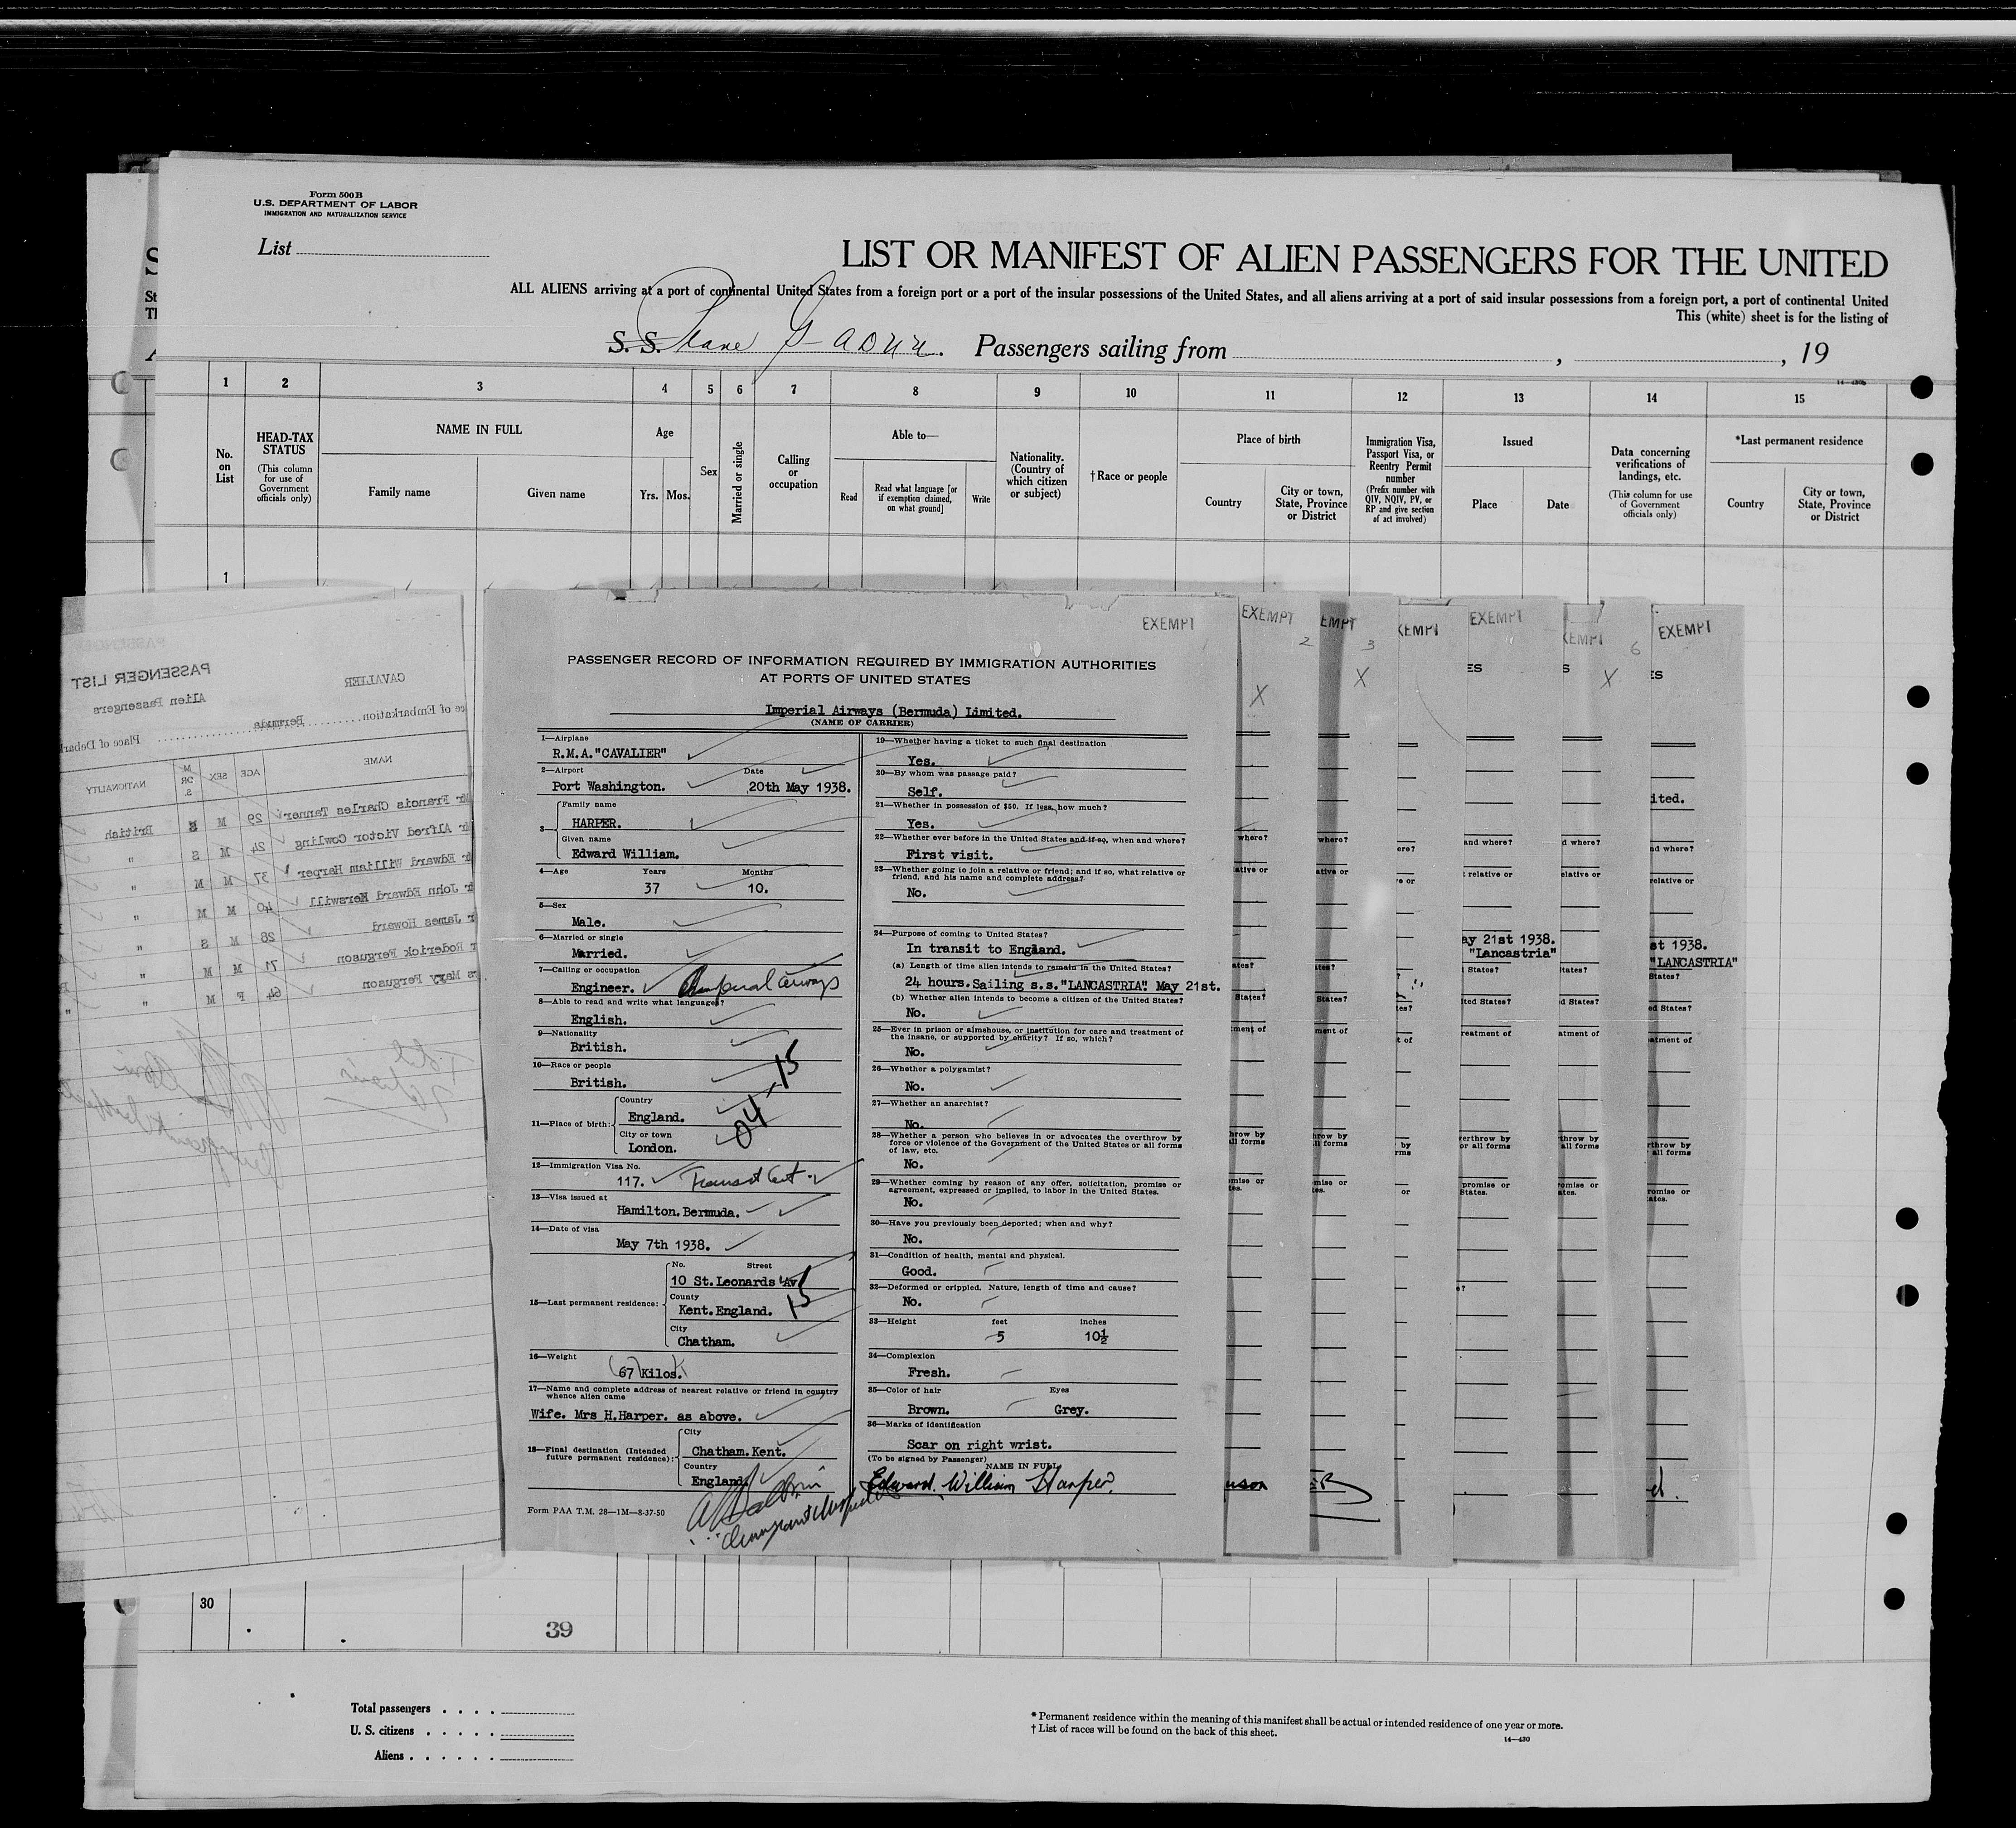 Form 500B
U.S. DEPARTMENT OF LABOR
IMMIGRATION AND NATURALIZATION SERVICE
List
LIST OR MANIFEST OF ALIEN PASSENGERS FOR THE UNITED
ALL ALIENS arriving at a port of continental United States from a foreign port or a port of the insular possessions of the United States, and all aliens arriving at a port of said insular possessions from a foreign port, a port of continental United
This (white) sheet is for the listing of
S. S. Plane Passengers sailing from , , 19
1 2 3 4 5 6 7 8 9 10 11 12 13 14 15
No. on List
HEAD-TAX STATUS
(This column for use of Government officials only)
NAME IN FULL
Family name Given name
Age
Yrs. Mos.
Sex
Married or single
Calling or occupation
Able to—
Read
Read what language [or if exemption claimed, on what ground]
Write
Nationality. (Country of which citizen or subject)
†Race or people
Place of birth
Country
City or town, State, Province or District
Immigration Visa, Passport Visa, or Reentry Permit number
(Prefix number with QIV, NQIV, PV, or RP and give section of act involved)
Issued
Place Date
Data concerning verifications of landings, etc.
(This column for use of Government officials only)
*Last permanent residence
Country
City or town, State, Province or District
1
PASSENGER LIST
CAVALIER
Alien Passengers
ce of Embarkation Bermuda
Place of Debark
NAME AGE SEX M OR S. NATIONALITY
Mr Francis Charles Tanner 29 M British
r Alfred Victor Cowling 24 M S "
r Edward William Harper 37 M M "
r John Edward Kerswill 40 M M "
r James Howard 28 M S "
r Roderick Ferguson 71 M M "
s Mary Ferguson 64 F M "
EXEMPT
PASSENGER RECORD OF INFORMATION REQUIRED BY IMMIGRATION AUTHORITIES
AT PORTS OF UNITED STATES
Imperial Airways (Bermuda) Limited.
(NAME OF CARRIER)
1—Airplane
R.M.A."CAVALIER"
2—Airport Date
Port Washington. 20th May 1938.
3—
Family name
HARPER.
Given name
Edward William.
4—Age Years Months
37 10.
5—Sex
Male.
6—Married or single
Married.
7—Calling or occupation
Engineer. Imperial Airways
8—Able to read and write what languages?
English.
9—Nationality
British.
10—Race or people
British.
04-15
11—Place of birth:
Country
England.
City or town
London.
12—Immigration Visa No.
117. Transit Cert.
13—Visa issued at
Hamilton.Bermuda.
14—Date of visa
May 7th 1938.
15—Last permanent residence:
No. Street
10 St.Leonards Av
County
Kent.England. 15
City
Chatham.
16—Weight
67 Kilos.
17—Name and complete address of nearest relative or friend in country whence alien came
Wife. Mrs H.Harper. as above.
18—Final destination (Intended future permanent residence):
City
Chatham.Kent.
Country
England.
Form PAA T.M. 28—1M—8-37-50
Immigrant Inspector
19—Whether having a ticket to such final destination
Yes.
20—By whom was passage paid?
Self.
21—Whether in possession of $50. If less, how much?
Yes.
22—Whether ever before in the United States and if so, when and where?
First visit.
23—Whether going to join a relative or friend; and if so, what relative or friend, and his name and complete address?
No.
24—Purpose of coming to United States?
In transit to England.
(a) Length of time alien intends to remain in the United States?
24 hours.Sailing s.s."LANCASTRIA". May 21st.
(b) Whether alien intends to become a citizen of the United States?
No.
25—Ever in prison or almshouse, or institution for care and treatment of the insane, or supported by charity? If so, which?
No.
26—Whether a polygamist?
No.
27—Whether an anarchist?
No.
28—Whether a person who believes in or advocates the overthrow by force or violence of the Government of the United States or all forms of law, etc.
No.
29—Whether coming by reason of any offer, solicitation, promise or agreement, expressed or implied, to labor in the United States.
No.
30—Have you previously been deported; when and why?
No.
31—Condition of health, mental and physical.
Good.
32—Deformed or crippled. Nature, length of time and cause?
No.
33—Height feet inches
5 10½
34—Complexion
Fresh.
35—Color of hair Eyes
Brown. Grey.
36—Marks of identification
Scar on right wrist.
(To be signed by Passenger)
NAME IN FULL
Edward William Harper.
EXEMPT 2
EMPT 3
XEMPT
EXEMPT
XEMPT 6
EXEMPT
ay 21st 1938.
"Lancastria"
st 1938.
"LANCASTRIA"
ited.
30
39
Total passengers
U. S. citizens
Aliens
* Permanent residence within the meaning of this manifest shall be actual or intended residence of one year or more.
† List of races will be found on the back of this sheet.
14—430